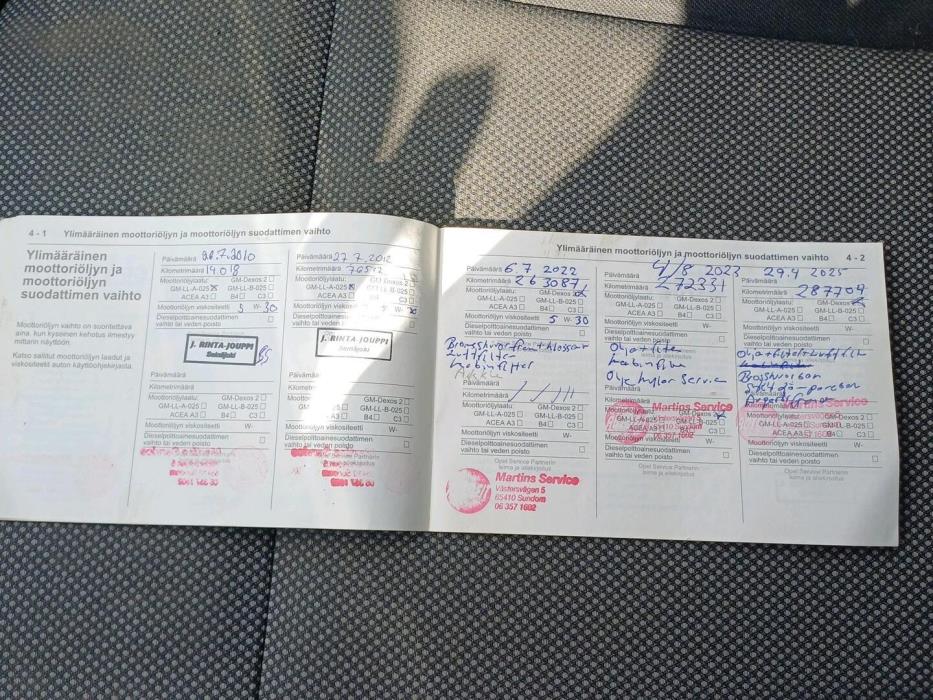 4 - 1 Ylimääräinen moottoriöljyn ja moottoriöljyn suodattimen vaihto
Ylimääräinen
moottoriöljyn ja
moottoriöljyn
suodattimen vaihto
Moottoriöljyn vaihto on suoritettava
aina, kun kyseinen kehotus ilmestyy
mittarin näyttöön.
Katso sallitut moottoriöljyn laadut ja
viskositeetit auton käyttöohjekirjasta.
Päivämäärä
Kilometrimäärä 14.018
Moottoriöljylaatu: GM-Dexos 2
GM-LL-A-025 GM-LL-B-025
ACEA A3 B4 C3
Moottoriöljyn viskositeetti 5 W- 30
Dieselpolttoainesuodattimen
vaihto tai veden poisto
J. RINTA-JOUPPI
Seinäjoki
Päivämäärä
Kilometrimäärä
Moottoriöljylaatu: GM-Dexos 2
GM-LL-A-025 GM-LL-B-025
ACEA A3 B4 C3
Moottoriöljyn viskositeetti W-
Dieselpolttoainesuodattimen
vaihto tai veden poisto
Päivämäärä 27.7.2012
Kilometrimäärä
Moottoriöljylaatu:
GM-LL-A-025
ACEA A3
Moottoriöljyn viskositeetti
Dieselpolttoainesuodattimen
vaihto tai veden poisto
J. RINTA-JOUPPI
Seinäjoki
Päivämäärä
Kilometrimäärä
Moottoriöljylaatu: GM-Dexos 2
GM-LL-A-025 GM-LL-B-025
ACEA A3 B4 C3
Moottoriöljyn viskositeetti W-
Dieselpolttoainesuodattimen
vaihto tai veden poisto
Ylimääräinen moottoriöljyn ja moottoriöljyn suodattimen vaihto 4 - 2
Päivämäärä 6.7 2022
Kilometrimäärä 263087
Moottoriöljylaatu: GM-Dexos
GM-LL-A-025 GM-LL-B-025
ACEA A3 B4 C3
Moottoriöljyn viskositeetti 5 W- 30
Luftfilter
Kabinfilter
Kilometrimäärä
Moottoriöljylaatu: GM-Dexos 2
GM-LL-A-025 GM-LL-B-025
ACEA A3 B4 C3
Moottoriöljyn viskositeetti W-
Dieselpolttoainesuodattimen
vaihto tai veden poisto
Opel Service Partnerin
leima ja allekirjoitus
Martins Service
Västersvägen 5
65410 Sundom
06 357 1602
Päivämäärä 4/8 2023
Kilometrimäärä 272331
Moottoriöljylaatu: GM-Dexos 2
GM-LL-A-025 GM-LL-B-025
ACEA A3 B4 C3
Moottoriöljyn viskositeetti W-
Dieselpolttoainesuodattimen
vaihto tai veden poisto
Service
Martins Service
06 357 1602
Moottoriöljyn viskositeetti W-
Dieselpolttoainesuodattimen
vaihto tai veden poisto
Opel Service Partnerin
leima ja allekirjoitus
29.4 2025
Kilometrimäärä 287704
Moottoriöljylaatu: GM-Dexos
GM-LL-A-025 GM-LL-B-025
ACEA A3 B4 C3
Moottoriöljyn viskositeetti W-
Dieselpolttoainesuodattimen
vaihto tai veden poisto
Martins Service
Moottoriöljyn viskositeetti W-
Dieselpolttoainesuodattimen
vaihto tai veden poisto
Opel Service Partnerin
leima ja allekirjoitus